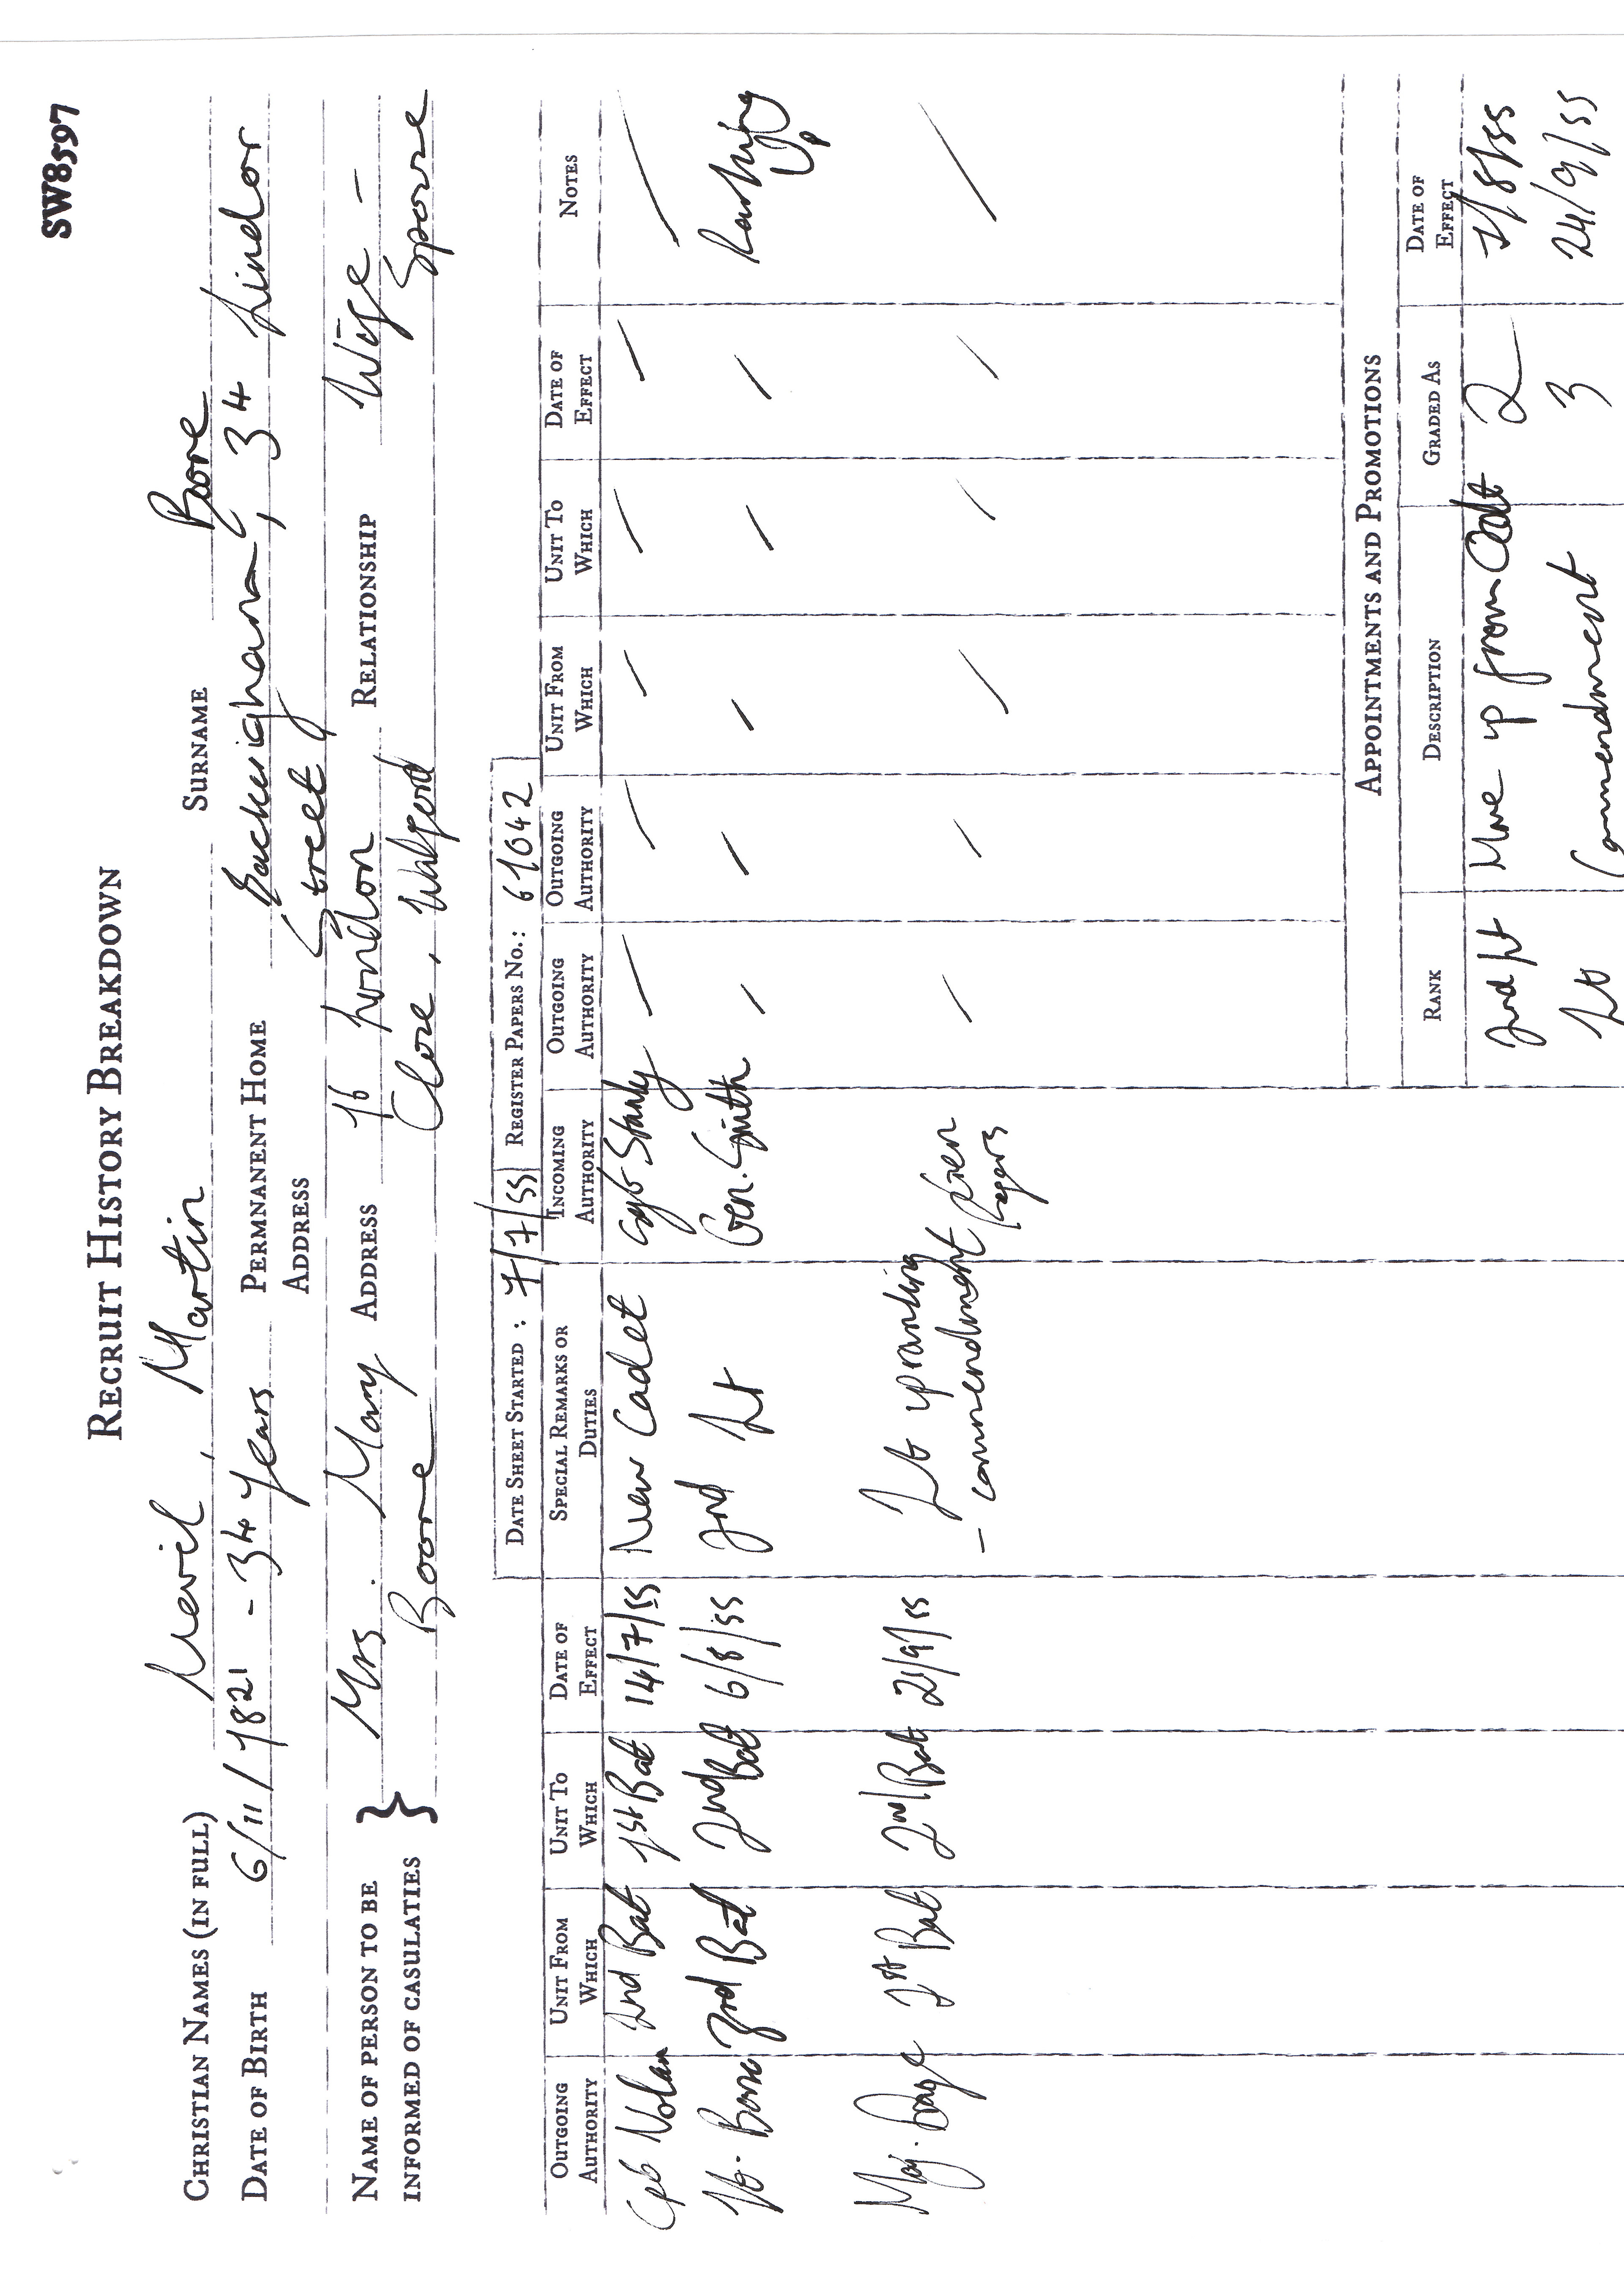 SW8597
RECRUIT HISTORY BREAKDOWN
CHRISTIAN NAMES (IN FULL) Nevil, Martin SURNAME Boore
DATE OF BIRTH 6/11/1821 - 34 years PERMNANENT HOME ADDRESS Buckingham, 34 Lindor Street
NAME OF PERSON TO BE INFORMED OF CASULATIES } Mrs. Mary Boore ADDRESS 16 London Close, Watford RELATIONSHIP Wife - Spouse
DATE SHEET STARTED : 7/7/55 REGISTER PAPERS NO.: 61042
OUTGOING AUTHORITY UNIT FROM WHICH UNIT TO WHICH DATE OF EFFECT SPECIAL REMARKS OR DUTIES INCOMING AUTHORITY OUTGOING AUTHORITY OUTGOING AUTHORITY UNIT FROM WHICH UNIT TO WHICH DATE OF EFFECT NOTES
Cpt Nolan 2nd Bat 1st Bat 14/7/55 New Cadet Cpt Stanly
3rd Bat 2nd Bat 6/8/55 2nd Lt Gen. Smith
Maj. 1st Bat 2nd Bat 21/9/55 Lt upranking
- commendment Gen Rogers
APPOINTMENTS AND PROMOTIONS
RANK DESCRIPTION GRADED AS DATE OF EFFECT
2nd Lt Move up from Cadt 2 /8/55
Lt Commendment 3 24/9/55